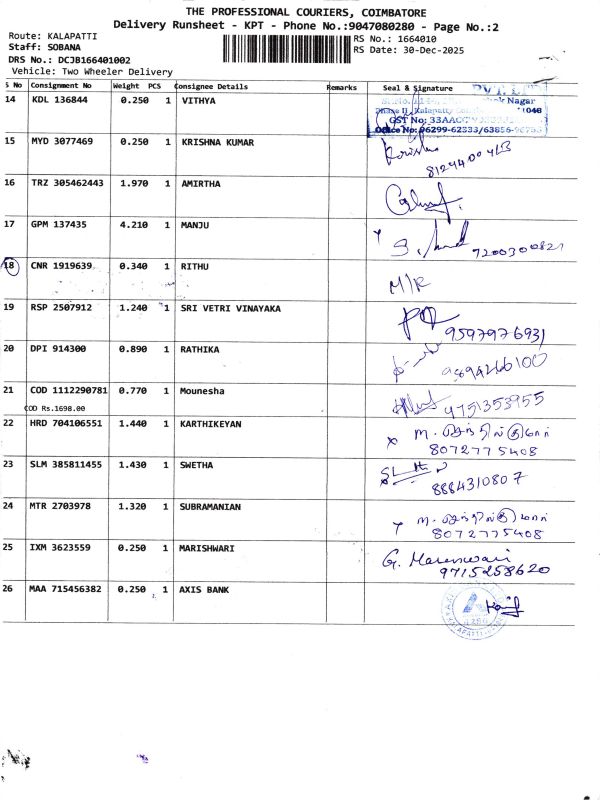 THE PROFESSIONAL COURIERS, COIMBATORE
Delivery Runsheet - KPT - Phone No.:9047080280 - Page No.:2
Route: KALAPATTI RS No.: 1664010
Staff: SOBANA RS Date: 30-Dec-2025
DRS No.: DCJB166401002
Vehicle: Two Wheeler Delivery
S No Consignment No Weight PCS Consignee Details Remarks Seal & Signature
PVT. LTD
14 KDL 136844 0.250 1 VITHYA
Nagar
Phase II, Kalapatti
GST No: 33AACC
Office No: 96299-62333/63856-
15 MYD 3077469 0.250 1 KRISHNA KUMAR
16 TRZ 305462443 1.970 1 AMIRTHA
17 GPM 137435 4.210 1 MANJU
7200300821
18 CNR 1919639 0.340 1 RITHU M/R
19 RSP 2507912 1.240 1 SRI VETRI VINAYAKA
9597976931
20 DPI 914300 0.890 1 RATHIKA
9894266100
21 COD 1112290781 0.770 1 Mounesha 9751353955
COD Rs.1698.00
22 HRD 704106551 1.440 1 KARTHIKEYAN
8072775408
23 SLM 385811455 1.430 1 SWETHA
8884310807
24 MTR 2703978 1.320 1 SUBRAMANIAN
8072775408
25 IXM 3623559 0.250 1 MARISHWARI G. Mareeswari
9715258620
26 MAA 715456382 0.250 1 AXIS BANK